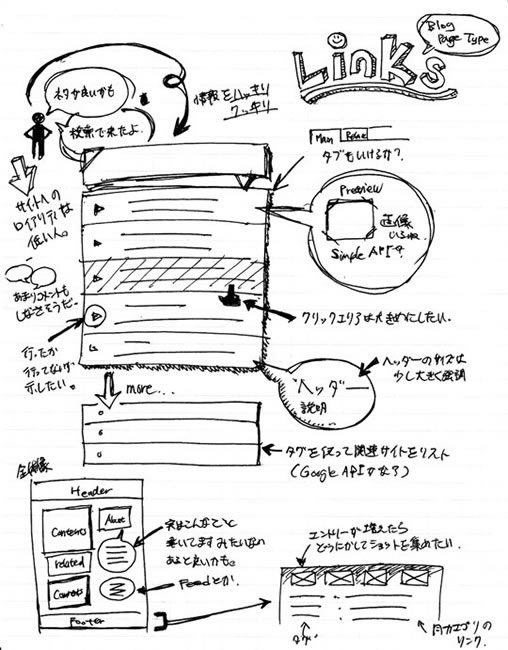 Links
Blog
Page Type
ネタが良いかも
検索で来たよ.
情報をハッキリ
クッキリ
Main
タブもいけるか?
サイトへの
ロイアリティは
低い人。
Preview
画像
Simple API?
あまりコメントも
しなさそうだ.
クリックエリアは大きめにしたい.
行ったか
行ってないか
示したい。
ヘッダー
説明
ヘッダーのサイズは
少し大きく強調
more...
タグを使って関連サイトをリスト
(Google APIかな?)
全体像
Header
Contents
About
related
Footer
実はこんなこと
書いてます みたいなの
あると良いかも。
Feedとか.
エントリーが増えたら
どうにかしてショットを集めたい.
タグ
同カテゴリの
リンク.